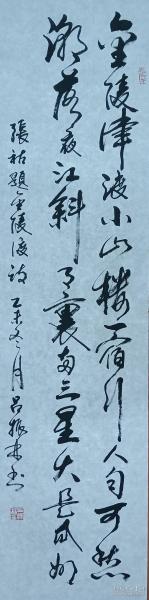 金陵津渡小山樓一宿行人自可愁
潮落夜江斜月裏兩三星火是瓜州
張祜題金陵渡詩 乙未冬月吕振书